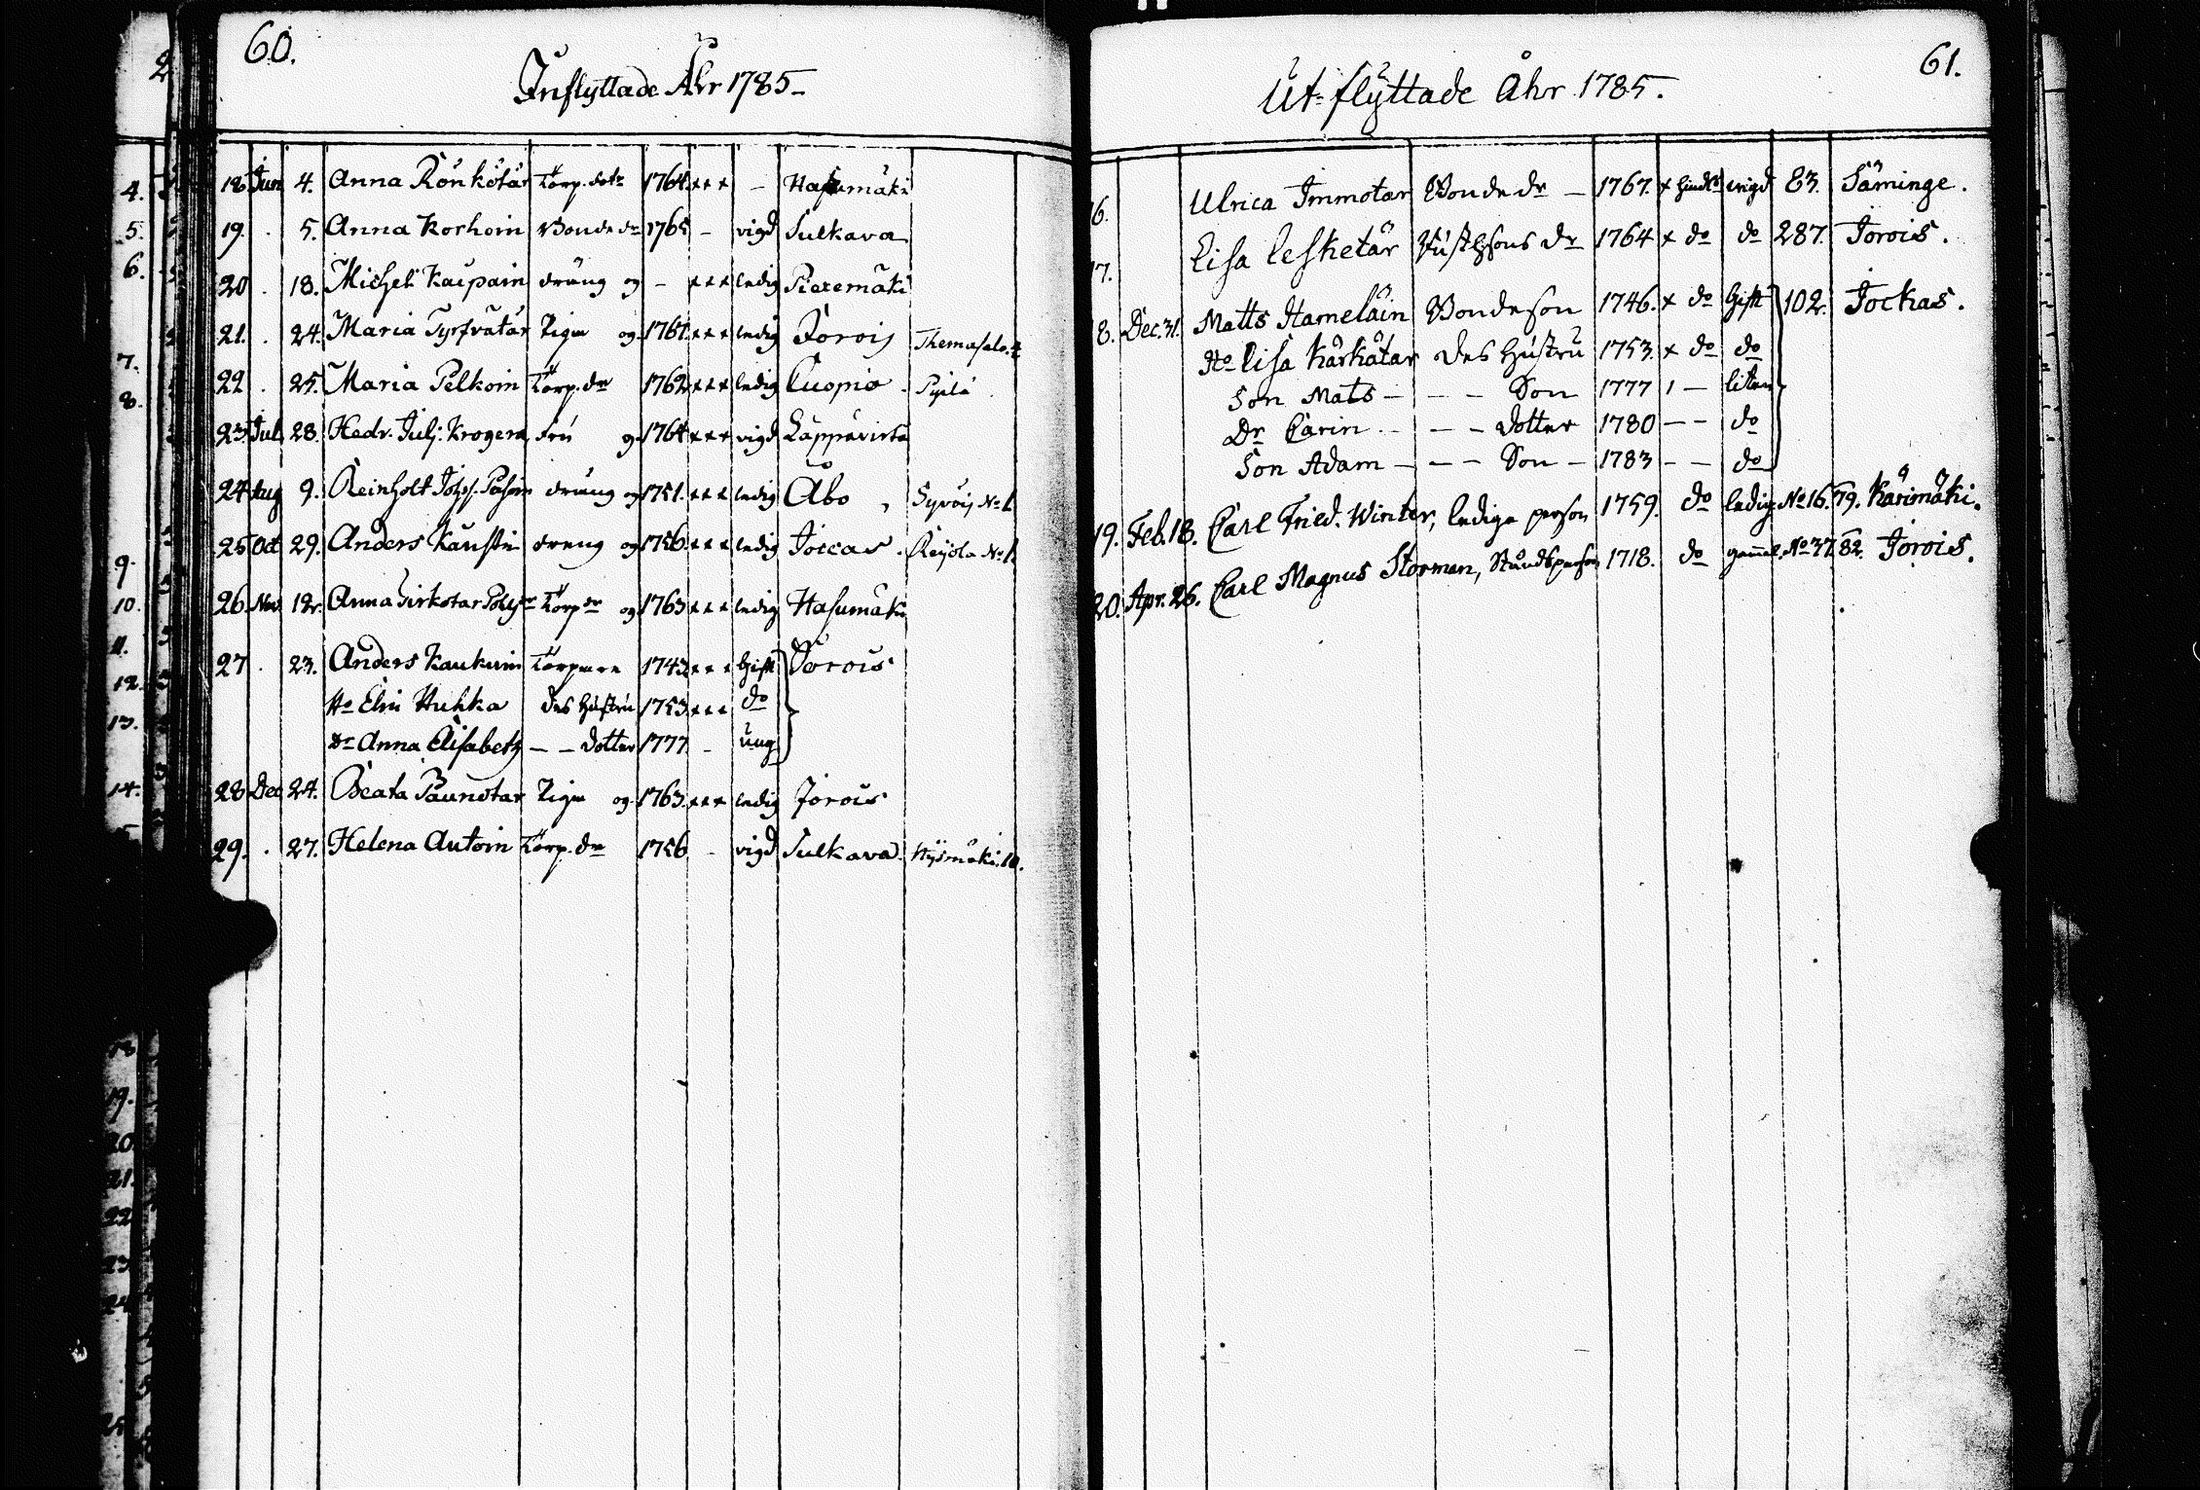 60.
Inflyttade Åhr 1785
18 Jun 4. Anna Rönkötär Torp. dotr 1764 x x x - Hasumäki
19. . 5. Anna Korhoin Bonde dr 1765 - vigd Sulkava
20 . 18. Michel Kaipain dräng og - x x x ledig Piexemäki
21. . 24. Maria Tyrfvätär Piga og. 1767 x x x ledig Jorois
22 . 25. Maria Pelkoin Torp. dr 1762 x x x ledig Cuopio
23. Jul 28. Hedv. Julj. Krogera fru g. 1764 x x x vigd Lappävirta
24 Aug 9. Reinholt dräng og 1751. x x x ledig Åbo Syväis No 1
25 Oct 29. Anders dreng og 1756 x x x ledig Joccas
26 Nov 12. Anna Torp dr og 1763 x x x ledig Hasumäki
27 . 23. Anders Kaukuin Torpare 1743 x x x Gift Jorois
Ho Elin Huhka des Hustru 1753 x x x do
Dr Anna Elisabeth - - dotter 1777 - ung
28 Dec 24. Beata Paunotar Piga og. 1763 x x x ledig Jorois
29. . 27. Helena Autoin Torp. dr 1756 - vigd Sulkava
61.
Ut-flyttade Åhr 1785.
6. Ulrica Immotar Bonde dr - 1767. x vigd 83. Säminge.
7. Lisa Lesketär dr 1764 x do do 287. Jorois.
8. Dec. 31. Matts Hameläin Bondeson 1746. x do Gift 102. Jockas.
Ho Lisa Kärkätar des Hustru 1753. x do do
Son Mats - - - Son 1777 1 - liten
Dr Carin - - - dotter 1780 - - do
Son Adam - - - Son - 1783 - - do
19. Feb. 18. Carl Fried. Winter, ledige person 1759. do ledig No 16. 79. Kärimäki.
20. Apr. 26. Carl Magnus Storman, Ståndsperson 1718. do gamel No 37. 82. Jorois.